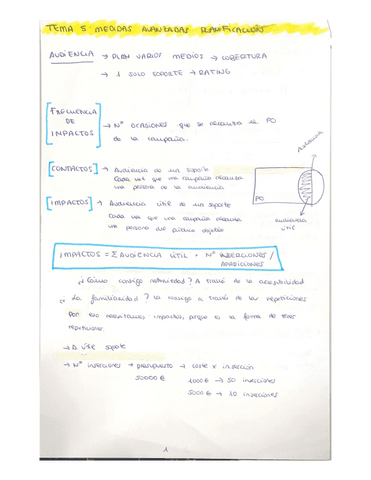 TEMA 5 MEDIDAS AVANZADAS PLANIFICACIÓN
AUDIENCIA → PLAN VARIOS MEDIOS → COBERTURA
→ 1 SOLO SOPORTE → RATING
[FRECUENCIA DE IMPACTOS] → Nº OCASIONES que se alcanza el PO
de la campaña.
[CONTACTOS] → Audiencia de un soporte
Cada vez que una campaña alcanza
una persona de la audiencia
[IMPACTOS] → Audiencia útil de un soporte
Cada vez que una campaña alcanza
una persona del público objetivo
Audiencia
PO
audiencia
útil
IMPACTOS = Σ AUDIENCIA ÚTIL × Nº INSERCIONES /
APARICIONES
¿Cómo consigo notoriedad? A través de la accesibilidad
¿La familiaridad? La consigo a través de las repeticiones
Por eso necesitamos impactos, porque es la forma de tener
repeticiones.
→ A. ÚTIL soporte
→ Nº inserciones → presupuesto → coste x inserción
50000 € 1000€ → 50 inserciones
5000€ → 10 inserciones
1